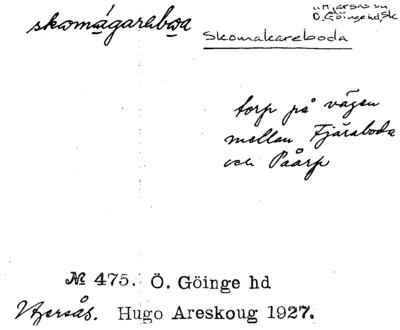 skomågaraboa
Skomakareboda
Ö. Göinge hd, Sk
torp på vägen
mellan Fjäraboda
och Påarp
№ 475. Ö. Göinge hd
Hjersås. Hugo Areskoug 1927.